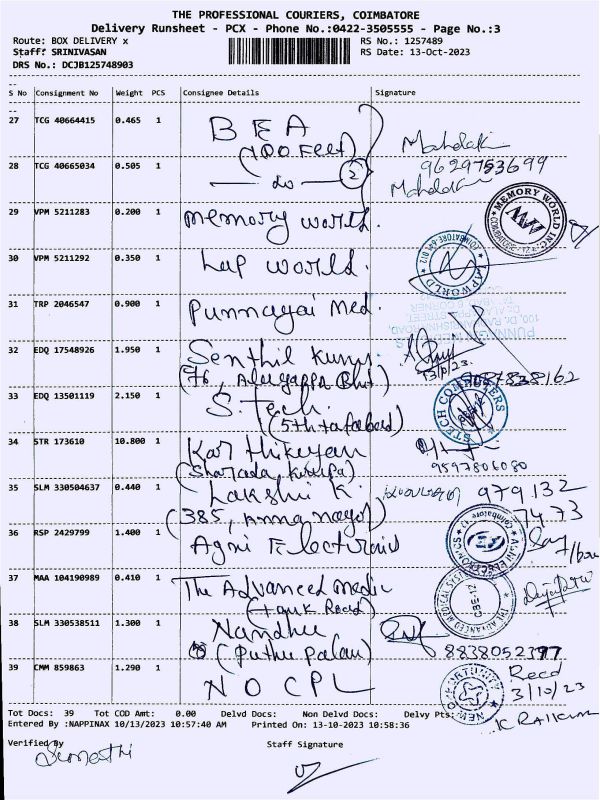 THE PROFESSIONAL COURIERS, COIMBATORE
Delivery Runsheet - PCX - Phone No.:0422-3505555 - Page No.:3
Route: BOX DELIVERY x RS No.: 1257489
Staff: SRINIVASAN RS Date: 13-Oct-2023
DRS No.: DCJB125748903
S No Consignment No Weight PCS Consignee Details Signature
27 TCG 40664415 0.465 1 BEA
(100 Feet)
28 TCG 40665034 0.505 1 do 2 9629753699
29 VPM 5211283 0.200 1 memory world. MEMORY WORLD INC
30 VPM 5211292 0.350 1 Lap world. LAPWORLD
31 TRP 2046547 0.900 1 Punnagai Med.
32 EDQ 17548926 1.950 1 Senthil Kumar
33 EDQ 13501119 2.150 1 S. Tech. STECH COMPUTERS
(5th tatabad)
34 STR 173610 10.800 1 Karthikeyan
9597806080
35 SLM 330504637 0.440 1 Lakshmi K. 979132
(385, Anna nagar) 7473
36 RSP 2429799 1.400 1 Agni Electronics AGNI ELECTRONICS Coimbatore
37 MAA 104190989 0.410 1 The Advanced Medic THE ADVANCED MEDICAL SYSTEMS CBE-12
38 SLM 330538511 1.300 1 Nandhu
(Puthu palam) 8838052397
39 CMM 859863 1.290 1 NO CPL Recd
3/10/23
Tot Docs: 39 Tot COD Amt: 0.00 Delvd Docs: Non Delvd Docs: Delvy Pts:
Entered By :NAPPINAX 10/13/2023 10:57:40 AM Printed On: 13-10-2023 10:58:36
Verified By Staff Signature
Sumathi